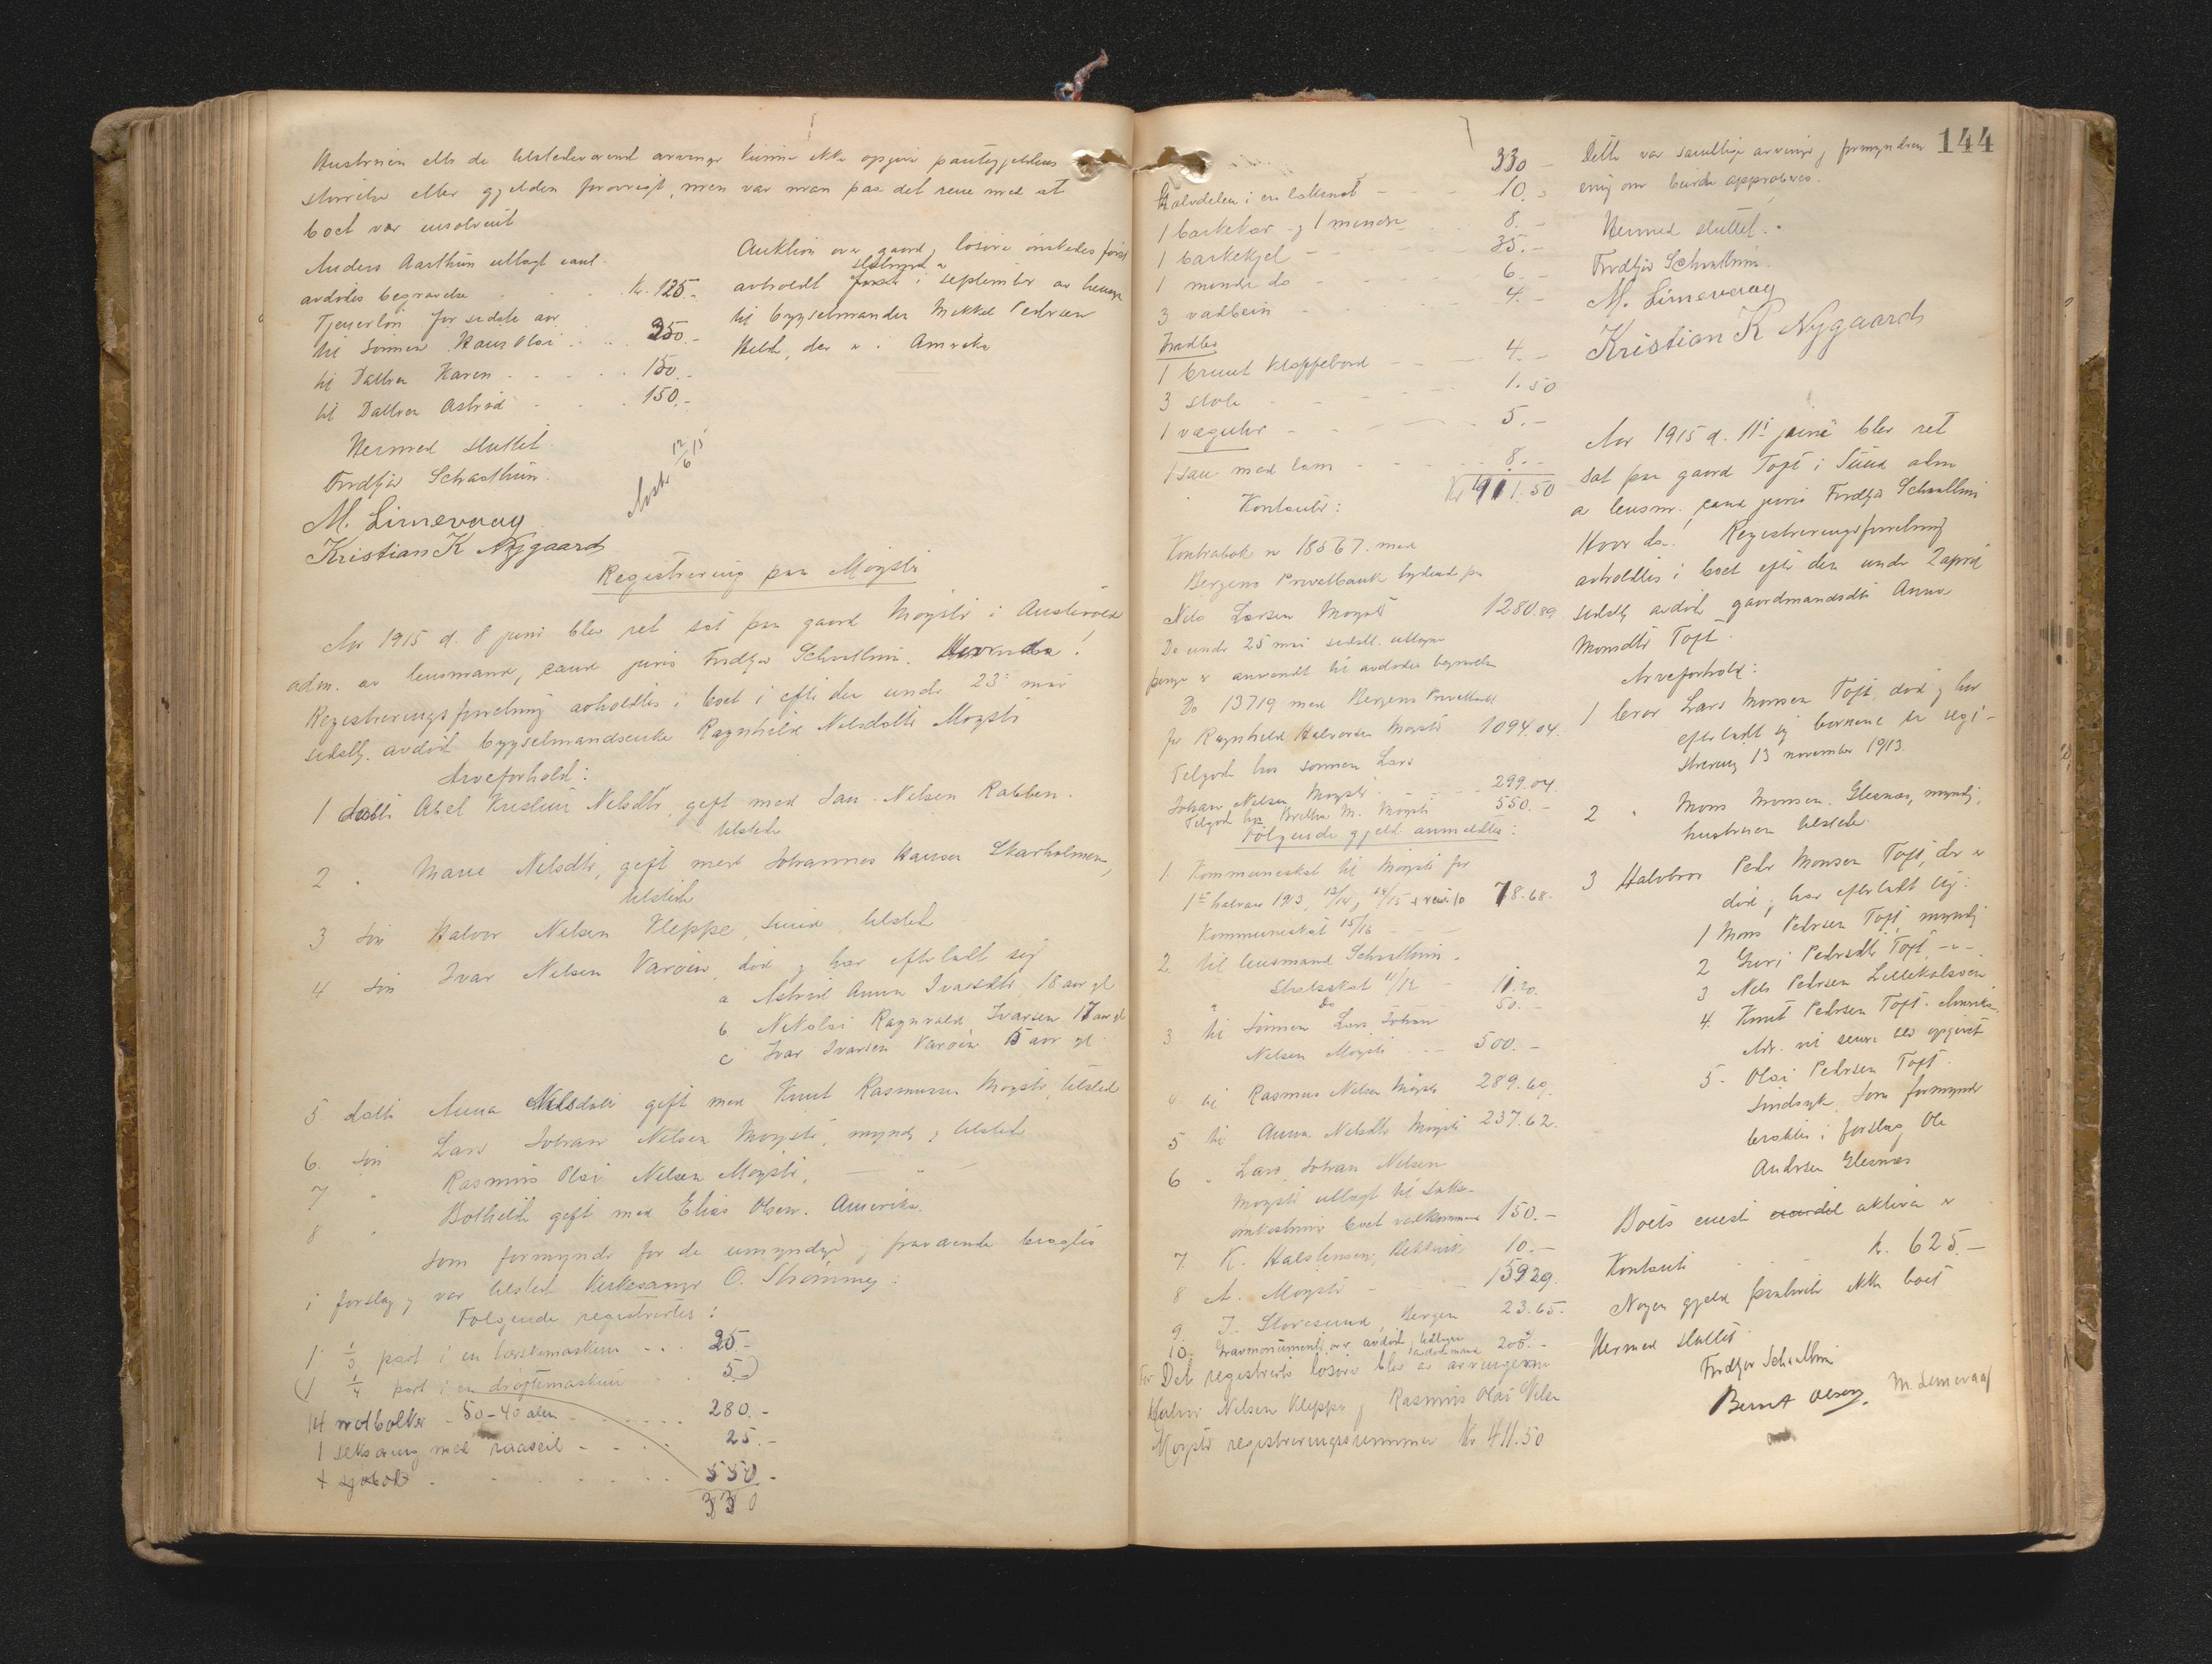 Hustruen eller de tilstedeværend arvinger kunne ikke opgive pantegjeldens
størrelse eller gjelden forøvrigt, men var man paa det rene med at
boet var insolvent
Anders Aarthun utlagt
avdødes begravelse kr. 125.-
Tjenerløn for sidste aar
til sønnen Hans Olai 250.-
til Datter Karen 150.-
til Datter Astrid 150.-
Hermed sluttet.
Fredtjov Schaathun.
M. Limevaag
Kristian K Nygaard
12/6 15
Auktion over gaard, løsøre ønskedes først
avholdt i september av hensyn
til bygselmanden Mikkel Pedersen
der er i Amerika
Registrering paa Møgster
Aar 1915 d. 8 juni blev ret sat paa gaard Møgster i Austevold
adm. av lensmand, cand juris Fredtjov Schaathun. Hvorda!
Registreringsforretning avholdtes i boet i efter den under 23 mai
sidstl. avdød bygselmandsenke Ragnhild Nilsdatter Møgster
Arveforhold:
1 datter Abel Kristine Nilsdtr, gift med Jan Nilsen Rabben.
tilstede
2 " Marie Nilsdtr, gift med Johannes Hansen Skarholmen,
tilstede
3 søn Halvor Nilsen Kleppe, Sund, tilstede
4 søn Ivar Nilsen Varøen, død og har efterladt sig
a Astrid Anna Ivarsdtr, 18 aar gl
b Nikolai Ragnvald Ivarsen 17 aar gl
c Ivar Ivarsen Varøen 15 aar gl
5 datter Anna Nilsdatter gift med Knut Rasmussen Møgster, tilstede
6. søn Lars Johan Nilsen Møgster, myndig, tilstede
7 " Rasmus Olai Nilsen Møgster, — " —
8 " Bothilde gift med Elias Olsen. Amerika.
Som formynder for de umyndige, fraværende bragtes
i forslag og var tilstede Kirkesanger O. Strømmen:
Følgende registrertes:
1 1/3 part i en tærskemaskine 25.-
(1 1/4 part i en drøftemaskine 5.-)
14 notbolker - 50-40 alen 280.-
1 seksæring med raaseil 25.-
330
144
330 -
Halvdelen i en laksenot 10.-
1 barkekar og 1 mindre 8.-
1 barkekjel 35.-
1 mindre do 6.-
3 vadbein 4.-
1 brunt klaffebord 4.-
3 stole 1.50
1 væguhr 5.-
1 sau med lam 8.-
Kr 411.50
Kontanter:
Kontrabok nr 18567. med
Bergens Privatbank lydende paa
Nils Larsen Møgster 1280.89
Do under 25 mai sidstl. uttagne
penge er anvendt til avdødes begravelse
Do 13719 med Bergens Privatbank
for Ragnhild Halvorsen Møgster 1094.04.
Tilgode hos sønnen Lars
Johan Nilsen Møgster 299.04.
Tilgode hos Brethe M. Møgster 550.-
Følgende gjeld anmeldtes:
1. Kommuneskat til Møgster for
1ste halvaar 1913, 13/14, 14/15 78.68.
Kommuneskat 15/16
2. til lensmand Schaathun.
Statsskat 11/12 11.20.
" Do 50.-
3 til sønnen Lars Johan
Nilsen Møgster 500.-
4 til Rasmus Nilsen Møgster 289.60.
5 til Anna Nilsdtr Møgster 237.62.
6 " Lars Johan Nilsen
Møgster utlagt til saks-
omkostninger boet vedkommende 150.-
7. K. Halstensen, Bekkjarvik 10.-
8 A. Møgster 139.29.
9. J. Storesund, Bergen 23.65.
10. Gravmonument over avdøde, tidligere avdøde mand 200.-
Det registrerte løsøre blev av arvingerne
Halvor Nilsen Kleppe og Rasmus Olai Nilsen
Møgster registreringssummen Kr 411.50
Dette var samtlige arvinger og formynderen
enig om burde approberes.
Hermed sluttet.
Fredtjov Schaathun.
M. Limevaag
Kristian K Nygaard
Aar 1915 d. 11te juni blev ret
sat paa gaard Toft i Sund adm
av lensm., cand juris Fredtjov Schaathun
Hvor da! Registreringsforretning
avholdtes i boet efter den under 2 april
sidstl. avdøde gaardmandsdtr Anna
Monsdtr Toft.
Arveforhold:
1 bror Lars Monsen Toft, død og har
efterladt sig børnene se regi-
strering 13 november 1913.
2 " Mons Monsen Glesnæs, myndig,
hustruen tilstede.
3 Halvbror Peder Monsen Toft, der er
død, har efterladt sig:
1 Mons Pedersen Toft, myndig
2 Guri Pedersdtr Toft, -"-
3 Nils Pedersen Lillekalsøen
4. Knut Pedersen Toft. Amerika.
Adr. vil senere bli opgivet
5. Olai Pedersen Toft.
Sindssyk. Som formynder
bragtes i forslag Ole
Andersen Glesnæs
Boets eneste aktiva er
Kontanter kr. 625.-
Nogen gjeld paahviler ikke boet
Hermed sluttet
Fredtjov Schaathun
Bernt Olsen. M. Limevaag